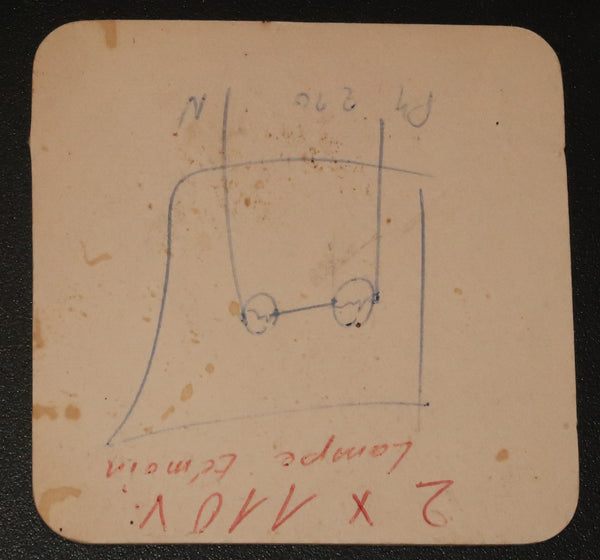 2 x 110V.
Lampe témoin
Ph 220 N